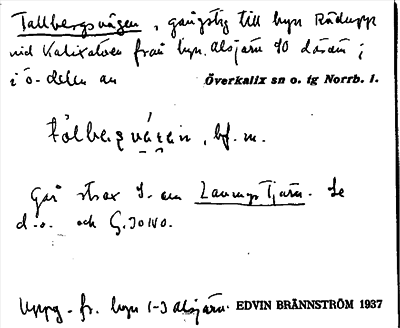 Tallbergsvägen, gångstig till byn Rödupp
vid Kalixälven från byn Alsjärv SO därom;
i ö-delen av Överkalix sn o. tg Norrb. l.
bf. m.
Går strax S. om Lannings Tjärn. Se
d.o. och G.
Uppg. fr. byn 1-3 Alsjärv. EDVIN BRÄNNSTRÖM 1937